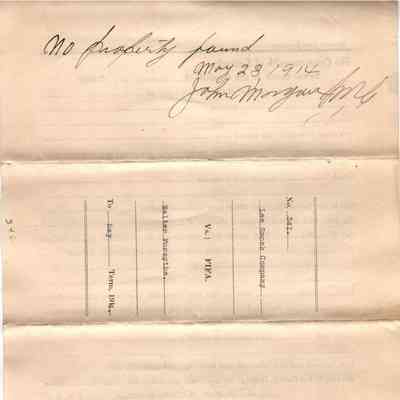 No property found
May 23, 1914
John Morgan
No. 341.
Lee Smoak Company
Vs.: FIFA.
Walter Forsythe.
To May Term, 1914.